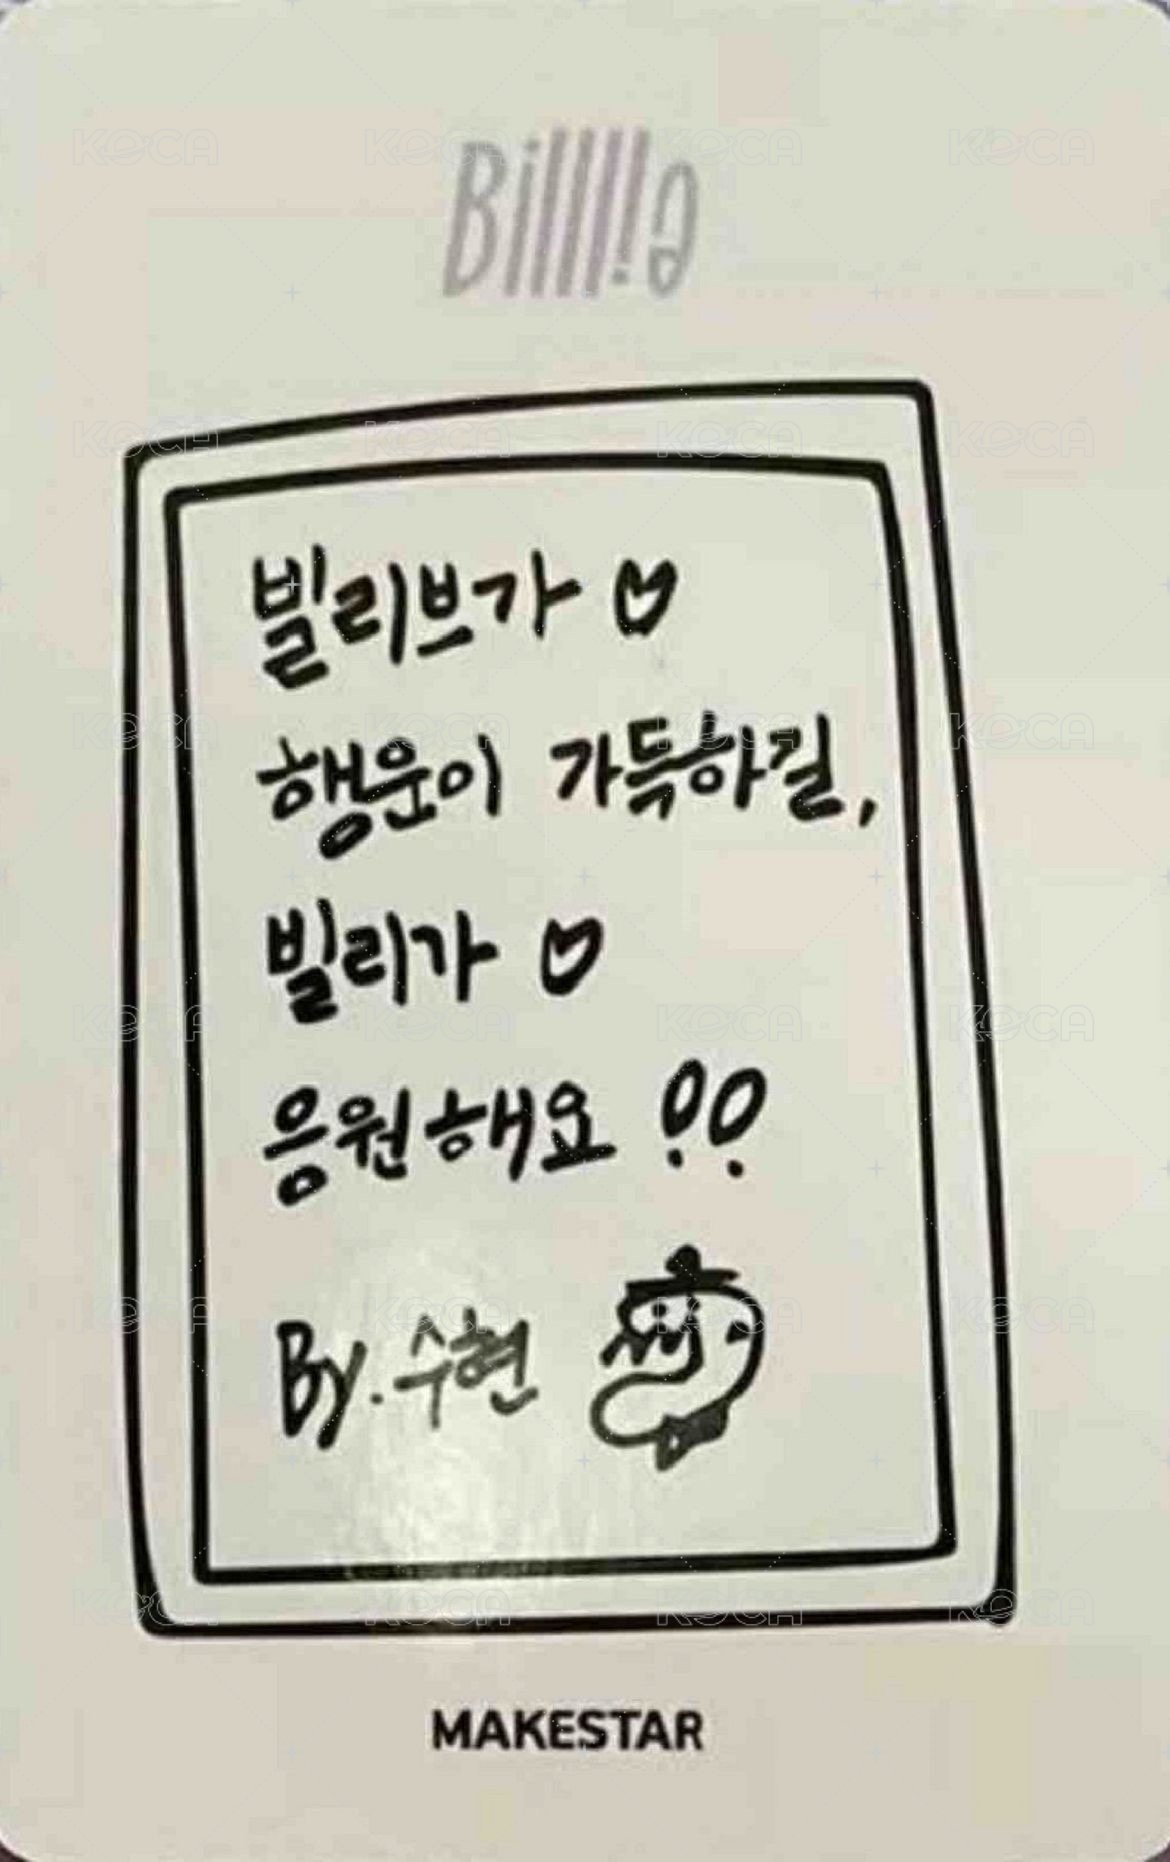 Billlie
빌리브가 ♡
행운이 가득하길,
빌리가 ♡
응원해요 !!
By. 수현
MAKESTAR
KOCA